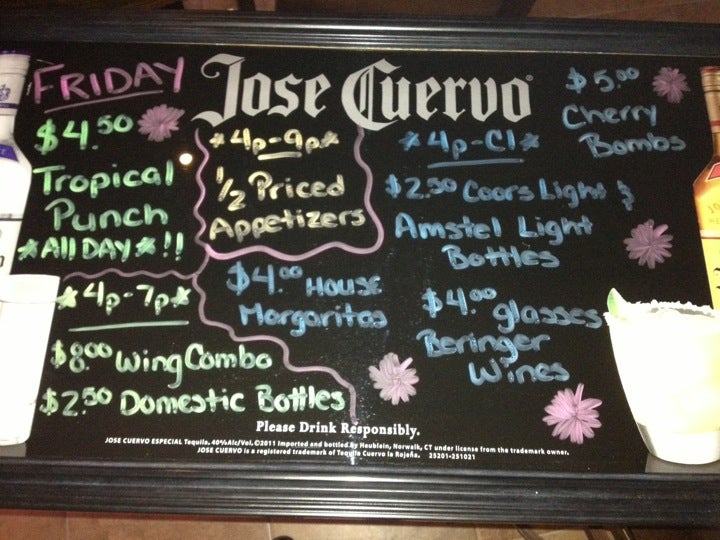 FRIDAY
$4.50
Tropical
Punch
*All DAY*!!
*4p-7p*
$8.00 Wing Combo
$2.50 Domestic Bottles
Jose Cuervo®
*4p-9p*
1/2 Priced
Appetizers
*4p-Cl*
$2.50 Coors Light &
Amstel Light
Bottles
$4.00 HOUSE
Margaritas
$4.00 glasses
Beringer
Wines
$5.00
Cherry
Bombs
Please Drink Responsibly.
JOSE CUERVO ESPECIAL Tequila. 40% Alc/Vol. ©2011 Imported and bottled by Heublein, Norwalk, CT under license from the trademark owner.
JOSE CUERVO is a registered trademark of Tequila Cuervo la Rojeña. 25201-251021